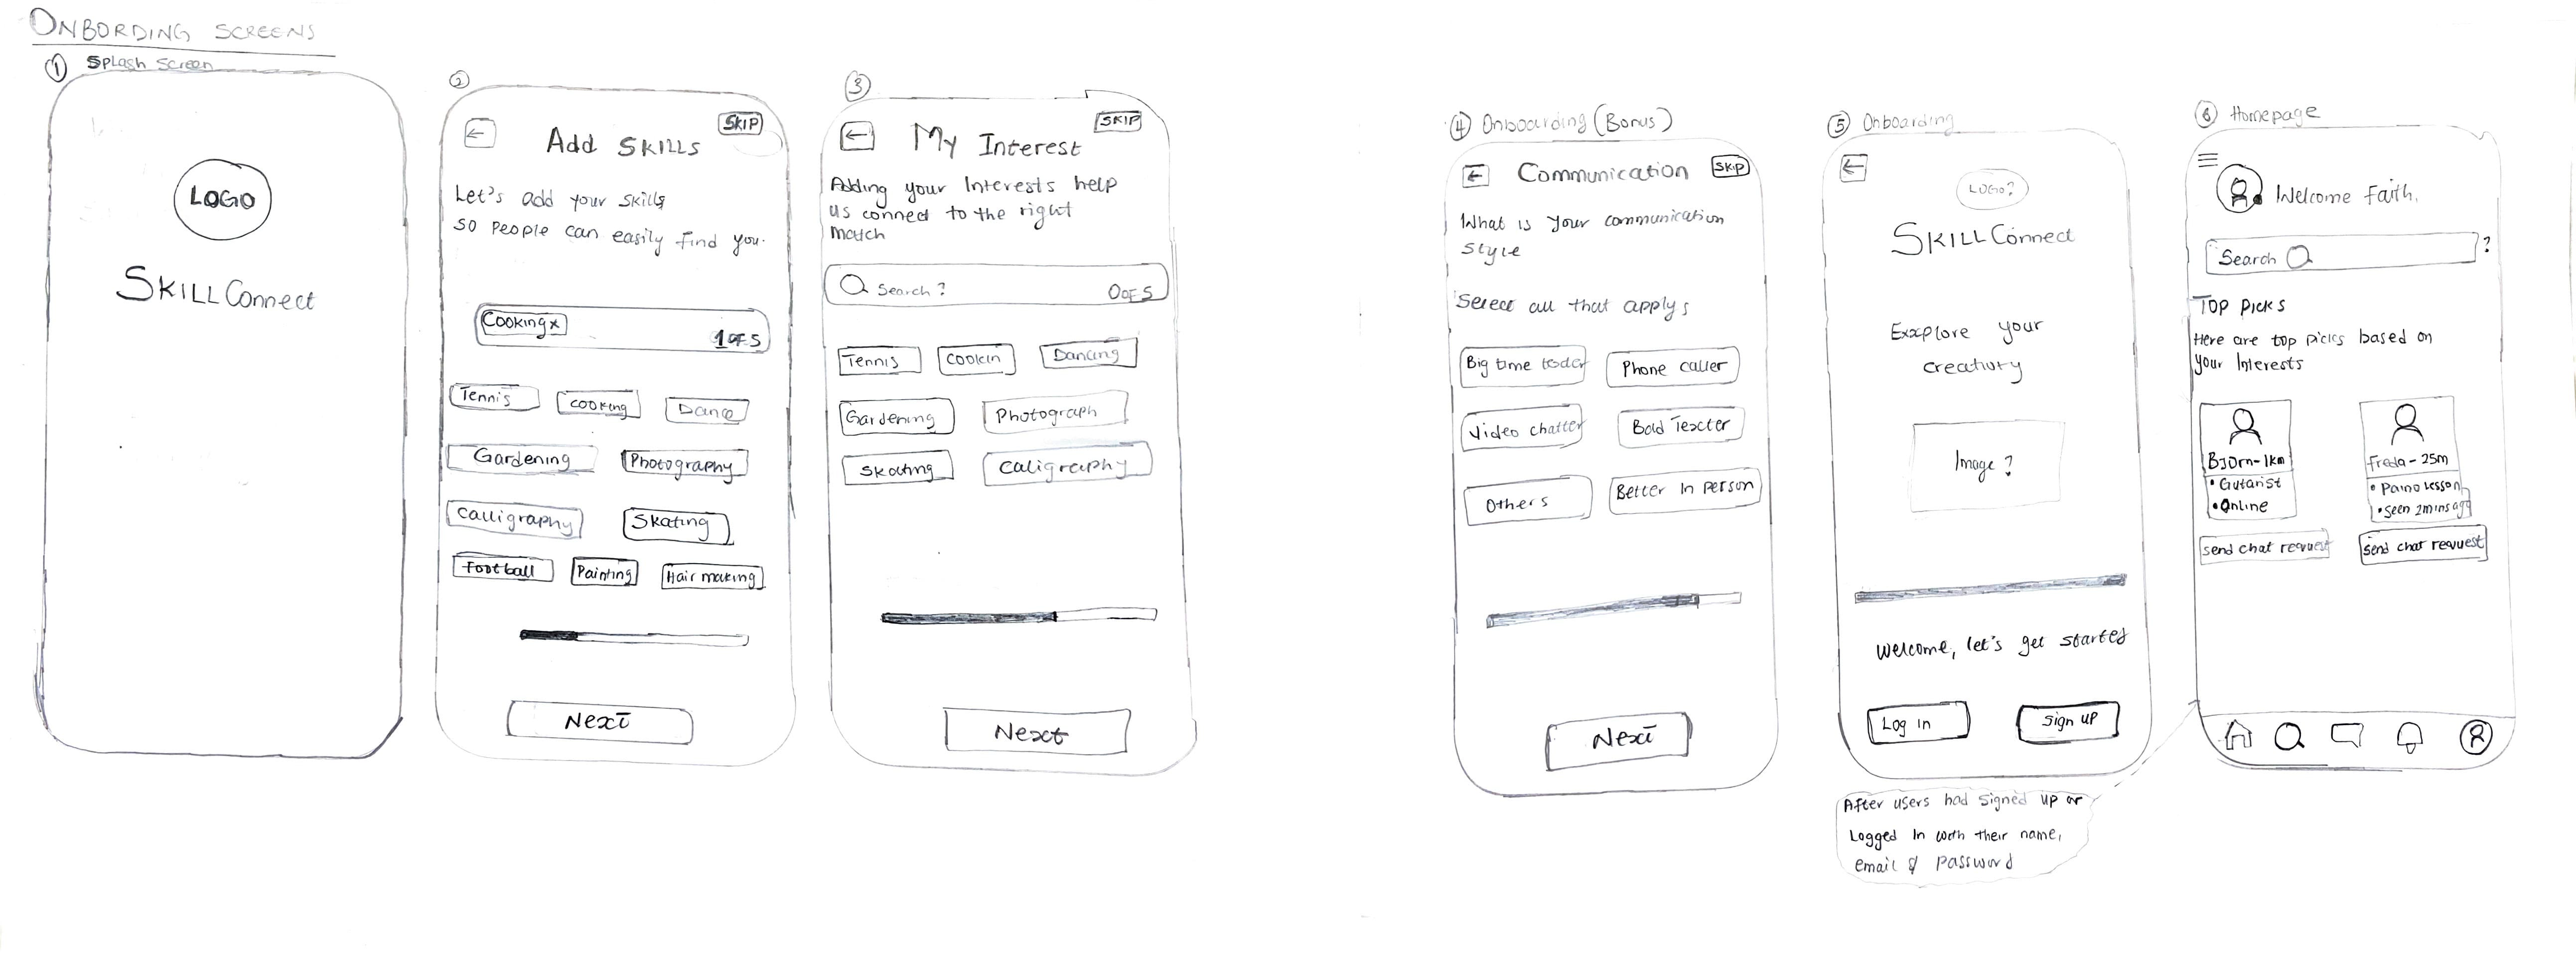 ONBORDING SCREENS
① Splash Screen
LOGO
SKILLConnect
②
←
SKIP
Add SKILLS
Let's add your skills
so people can easily find you.
Cooking x
1 of 5
Tennis
cooking
Dance
Gardening
Photography
Calligraphy
Skating
Football
Painting
Hair making
Next
③
←
SKIP
My Interest
Adding your Interests help
us connect to the right
match
Search?
0 of 5
Tennis
Cookin
Dancing
Gardening
Photograph
Skating
Caligraphy
Next
④ Onboarding (Bonus)
←
Communication
SKIP
What is your communication
style
Select all that applys
Big time
Phone caller
Video chatter
Bold Texter
Others
Better In person
Next
⑤ Onboarding
←
LOGO?
SKILLConnect
Exxplore your
Image?
Welcome, let's get started
Log in
Sign up
After users had signed up or
Logged In with their name,
email & password
⑥ Homepage
Welcome Faith,
Search
?
TOP Picks
Here are top picks based on
your Interests
BJorn-1km
• Gutarist
• Online
Send chat request
Freda-25m
• Paino lesson
• Seen 2mins ago
Send chat request